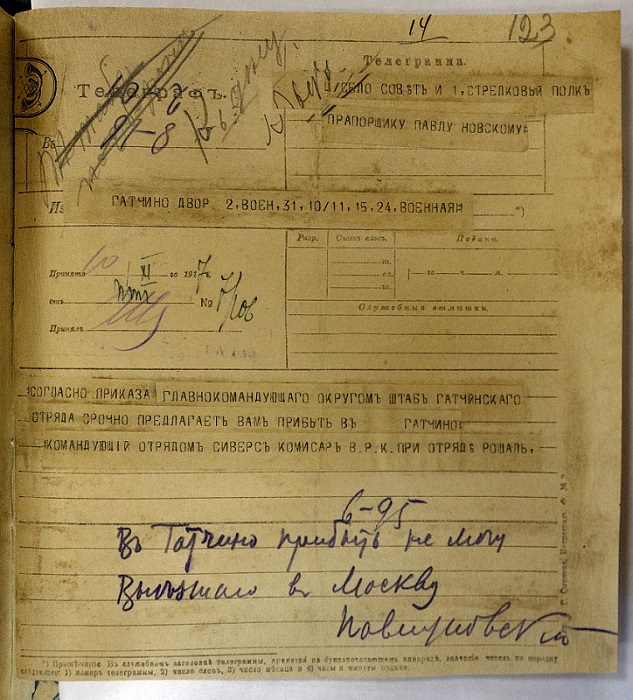 14
123.
Телеграмма.
Телеграфъ.
СЕЛО СОВѢТЪ И 1,СТРЕЛКОВЫЙ ПОЛКЪ
21-8
Въ
ПРАПОРЩИКУ ПАВЛУ НОВСКОМУ=
Из
ГАТЧИНО ДВОР. 2,ВОЕН,31,10/11,15,24,ВОЕННАЯ=
*)
Разр.
Счетъ словъ.
Подана.
Принята 10 XI го 1917 г.
отъ
№ 7/106
Служебныя отмѣтки.
Принялъ
=СОГЛАСНО ПРИКАЗА ГЛАВНОКОМАНДУЮЩАГО ОКРУГОМЪ ШТАБЪ ГАТЧИНСКАГО
ОТРЯДА СРОЧНО ПРЕДЛАГАЕТЪ ВАМЪ ПРИБЫТЬ ВЪ ГАТЧИНО=
КОМАНДУЮЩІЙ ОТРЯДОМЪ СИВЕРСЪ КОМИСАРЪ В.Р.К. ПРИ ОТРЯДѢ РОШАЛЬ,
6-95
Въ Гатчино прибыть не могу
Выезжаю в Москву
Павлуновский
*) Примѣчаніе. Въ служебномъ заголовкѣ телеграммы, принятой на буквопечатающемъ аппаратѣ, значеніе чиселъ по порядку
слѣдующее: 1) номеръ телеграммы, 2) число словъ, 3) число мѣсяца и 4) часы и минуты подачи.